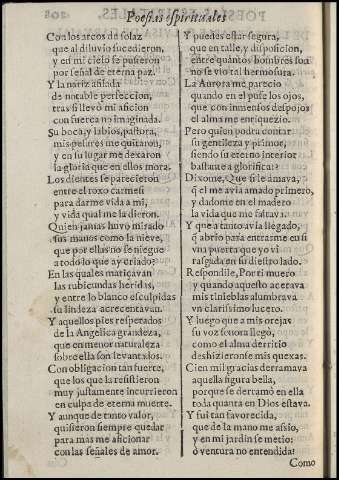 Poesias espirituales
Con los arcos de solaz
que al diluvio sucedieron,
y en mi cielo se pusieron
por señal de eterna paz.
Y la nariz afilada
de notable perfeccion,
tras si llevò mi aficion
con fuerça no imaginada.
Su boca, y labios, pastora,
mis pesares me quitaron,
y en su lugar me dexaron
la gloria que en ellos mora.
Los dientes se parecieron
entre el roxo carmesi
para darme vida a mi,
y vida qual me la dieron.
Quien jamas huvo mirado
sus manos como la nieve,
que por ellas no se niegue
a todo lo que ay criado?
En las quales matiçavan
las rubicundas heridas,
y entre lo blanco esculpidas
su lindeza acrecentavan.
Y aquellos pies respetados
de la Angelica grandeza,
que en menor naturaleza
sobre ella son levantados.
Con obligacion tan fuerte,
que los que la resistieron
muy justamente incurrieron
en culpa de eterna muerte.
Y aunque de tanto valor,
quisieron siempre quedar
para mas me aficionar
con las señales de amor.
Y puedes estar segura,
que en talle, y disposicion,
entre quãntos hombres son
no se vio tal hermosura.
La Aurora me parecio
quando en el puse los ojos,
que con inmensos despojos
el alma me enriquezio.
Pero quien podra contar
su gentileza y primor,
siendo su eterno interior
bastante a glorificar?
Dixome, Que si le amava,
q̃ el me avia amado primero,
y dadome en el madero
la vida que me faltava.
Y que a tanto avia llegado,
q̃ abrio para entrarme en si
vna puerta que yo vi
rasgada en su diestro lado.
Respondile, Por ti muero
y quando aquesto acetava
mis tinieblas alumbrava
vn clarissimo luzero.
Y luego que a mis orejas
su voz sonora llegó,
como el alma derritio
deshizieronse mis quexas.
Cien mil gracias derramava
aquella figura bella,
porque se derramò en ella
toda quanta en Dios estava.
Y fui tan favorecida,
que de la mano me assio,
y en mi jardin se metio:
ò ventura no entendida!
Como